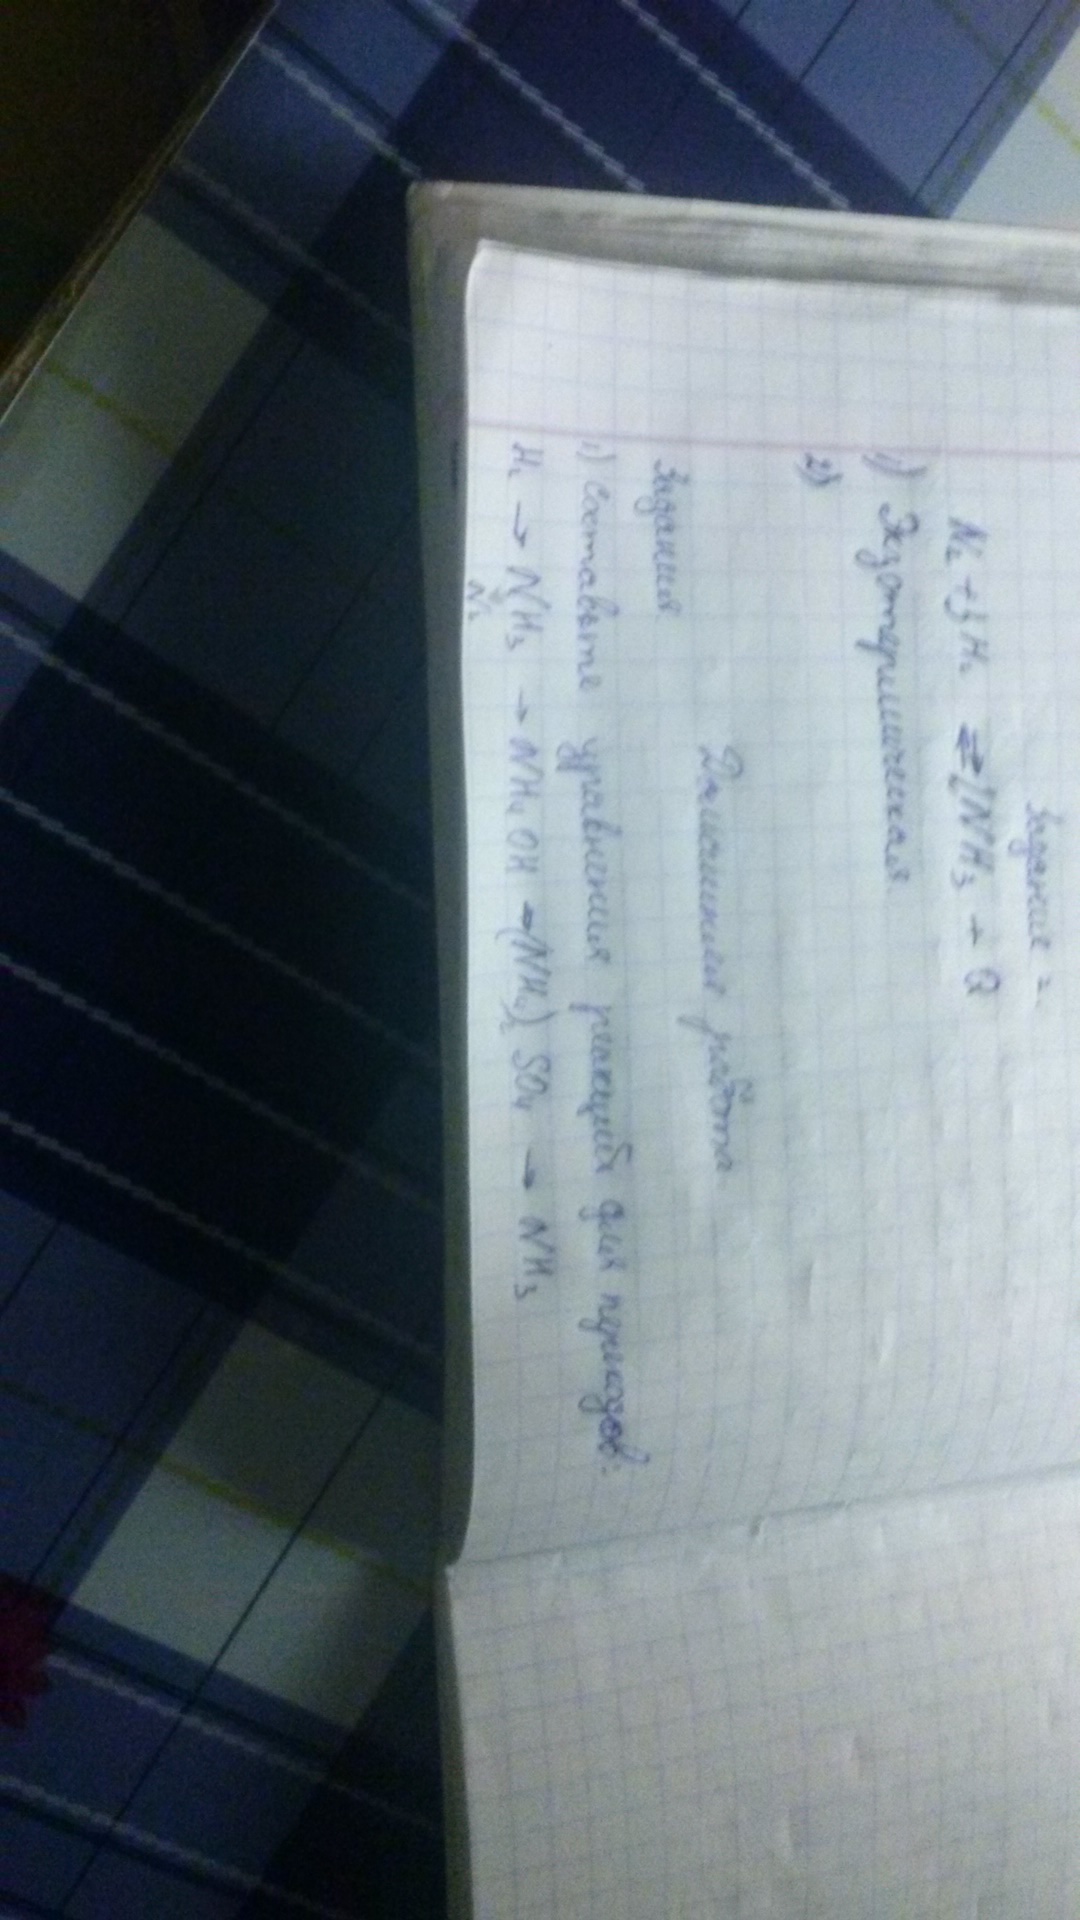 Задание 2.
N₂ + 3H₂ ⇄ 2NH₃ + Q
1) Экзотермическая
2)
Домашняя работа
Задания
1) Составьте уравнения реакций для переходов:
H₂ → NH₃ → NH₄OH → (NH₄)₂SO₄ → NH₃
N₂